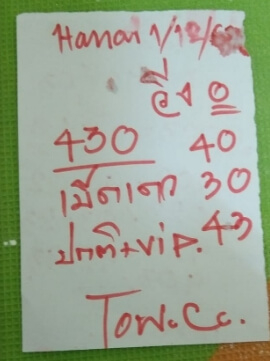 Hanoi 1/12/65
วิ่ง 0
430 40
เปิดเตา 30
ปกติ+vip. 43
Tow.Cc.